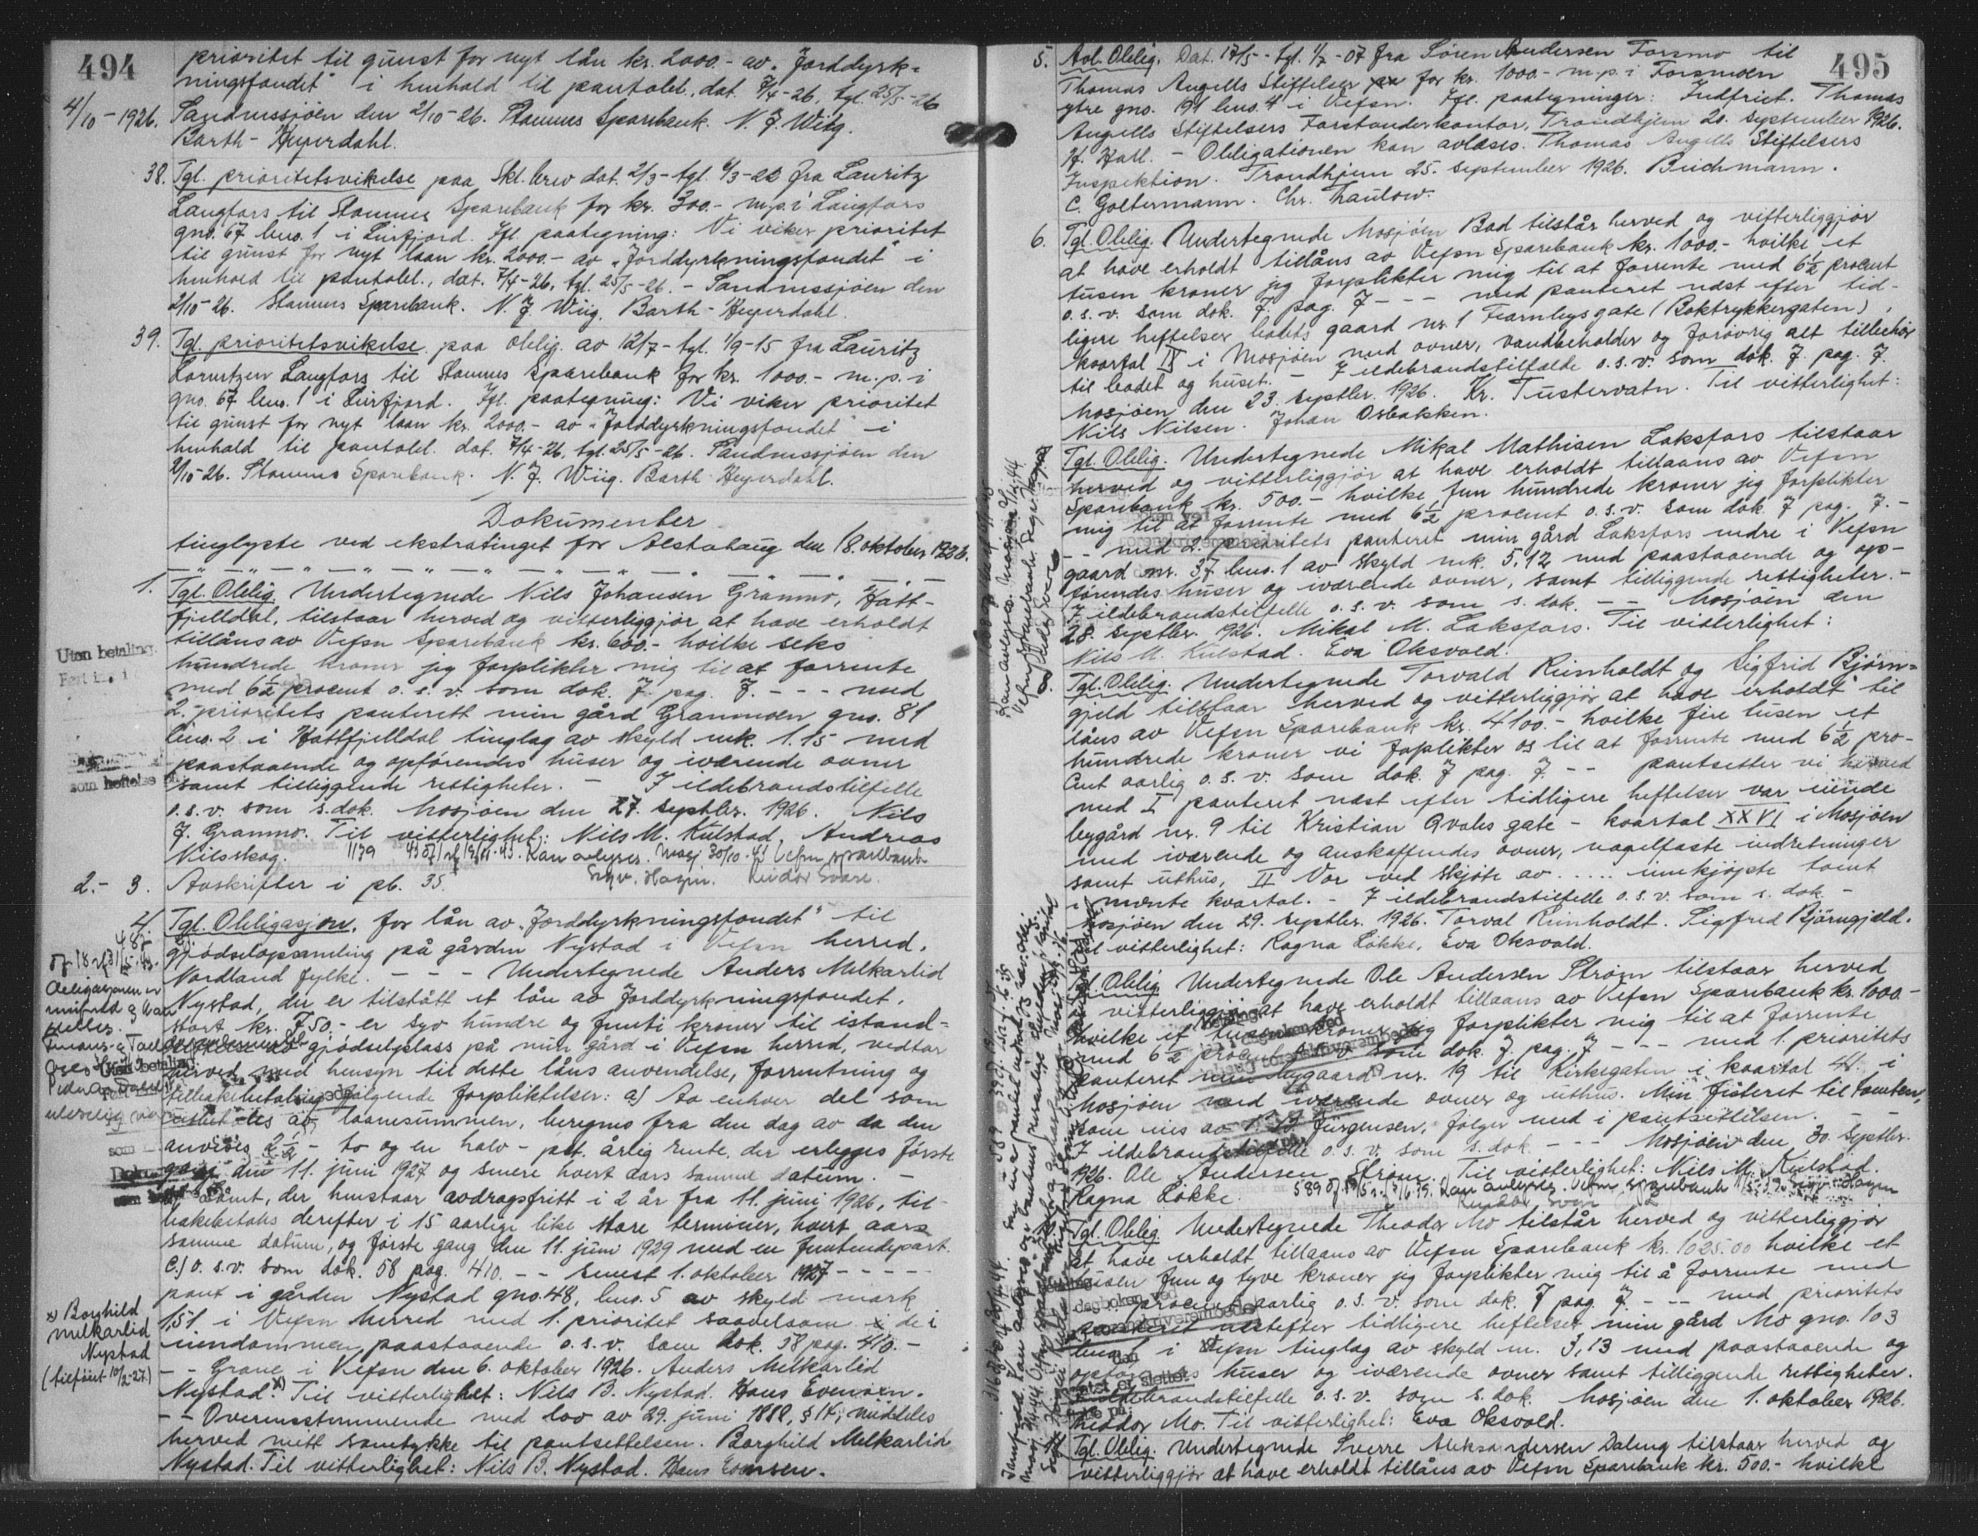 494
prioritet til gunst for nyt lån kr. 2000.- av „Jorddyrk-
ningsfondet" i henhold til pantobl. dat. 7/4-26, tgl. 25/5-26
4/10-1926. Sandnessjøen den 2/10-26. Stamnes Sparebank. N. J. Wiig.
Barth-Heyerdahl.
38. Tgl. prioritetsvikelse paa Skl.brev dat. 2/3- tgl. 6/3-23 fra Lauritz
Langfors til Stamnes Sparebank for kr. 300.- m.p. i Langfors
gno. 67 bno. 1 i Leirfjord. Ifl. paategning: Vi viker prioritet
til gunst for nyt laan kr. 2000.- av „Jorddyrkningsfondet" i
henhold til pantobl., dat. 7/4-26, tgl. 25/5-26. - Sandnessjøen den
2/10-26. Stamnes Sparebank. N. J. Wiig. Barth-Heyerdahl.
39. Tgl. prioritetsvikelse paa oblig. av 12/7- tgl. 1/9-15 fra Lauritz
Lorentzen Langfors til Stamnes Sparebank for kr. 1000.- m.p. i
gno. 67 bno. 1 i Leirfjord. Ifl. paategning: Vi viker prioritet
til gunst for nyt laan kr. 2000.- av „Jorddyrkningsfondet" i
henhold til pantobl. dat. 7/4-26, tgl. 25/5-26. Sandnessjøen den
2/10-26. Stamnes Sparebank. N. J. Wiig. Barth Heyerdahl.
Dokumenter
tinglyste ved ekstratinget for Alstahaug den 18. oktober 1926.
1. Tgl. Oblig. Undertegnede Nils Johansen Grammo, Hatt-
fjelldal, tilstaar herved og vitterliggjør at have erholdt
tillåns av Vefsn Sparebank kr. 600.- hvilke seks
Uten betaling
hundrede kroner jeg forplikter mig til at forrente
med 6½ procent o. s. v. som dok. 7 pag. 7. - - - med
2. prioritets panterett min gård Grammoen gno. 81
bno. 2 i Hattfjelldal tinglag av skyld mk. 1.15 med
paastaaende og opførendes huser og iværende ovner
som heftelse på
samt tilliggende rettigheter. - I ildebrandstilfelle
o.s.v. som s. dok. Mosjøen den 27. septbr. 1926. Nils
J. Grammo. Til vitterlighet: Nils M. Kulstad. Andreas
Nilsskog. Kan avlyses. Mosj 30/10-43 Vefsn sparebank
Sigv. Hagen. Reidar Svare.
2.- 3. Avskrifter i pb. 35.
4. Tgl. Obligasjon, for lån av „Jorddyrkningsfondet" til
gjødselopsamling på gården Nystad i Vefsn herred,
Nordland fylke. - - - Undertegnede Anders Melkarlid
Nystad, der er tilstått et lån av Jorddyrkningsfondet,
stort kr. 750.- er syv hundre og femti kroner til istand-
gjødselplass på min gård i Vefsn herred, vedtar
herved med hensyn til dette låns anvendelse, forrentning og
tilbakebetaling følgende forpliktelser: a) Av enhver del som
av laanesummen, beregnes fra den dag av da den
anvises 2½ - to og en halv - pct. årlig rente, der erlegges første
gang den 11. juni 1927 og senere hvert aars samme datum. -
lånet, der henstaar avdragsfritt i 2 år fra 11. juni 1926, til-
bakebetales derefter i 15 aarlige like store terminer, hvert aars
samme datum, og første gang den 11. juni 1929 med en femtendepart.
c.) o. s. v. som dok. 58 pag. 410. - - senest 1. oktober 1927 - - - -
pant i gården Nystad gno. 48, bno. 5 av skyld mark
1,51 i Vefsn herred med 1. prioritet saavelsom i de i
eiendommen paastaaende o. s. v. som dok. 38 pag. 410. -
- - Grane i Vefsn den 6. oktober 1926. Anders Melkarlid
Nystad. x) Til vitterlighet: Nils B. Nystad. Hans Evensen.
- - Overensstemmende med lov av 29. juni 1888, § 14, meddeles
herved mitt samtykke til pantsettelsen. Borghild Melkarlid
Nystad. Til vitterlighet: Nils B. Nystad. Hans Evensen.
x Borghild
Melkarlid
Nystad
(tilført 10/2-27)
495
5. Avl. Oblig. Dat. 17/5- tgl. 1/7-07 fra Søren Andersen Forsmo til
Thomas Angells Stiftelser for kr. 1000.- m.p. i Forsmoen
ytre gno. 91 bno. 4 i Vefsn. Ifl. paategninger: Indfriet. Thomas
Angells Stiftelsers Forstanderkontor, Trondhjem 20. september 1926.
H. Hall. - Obligationen kan avlæses. Thomas Angells Stiftelsers
Inspektion. Trondhjem 25. september 1926. Buchmann.
C. Goltermann. Chr. Thaulow.
6. Tgl. Oblig. Undertegnede Mosjøen Bad tilstår herved og vitterliggjør
at have erholdt tillåns av Vefsn Sparebank kr. 1000.- hvilke et
tusen kroner jeg forplikter mig til at forrente med 6½ procent
o. s. v. som dok. 7. pag. 7 - - - med panteret næst efter tid-
ligere heftelser badets gaard nr. 1 Fearnleysgate (Boktrykkergaten),
kvartal IX i Mosjøen med ovner, vandbeholder og forøvrig alt tilbehør
til badet og huset. - I ildebrandstilfælde o.s.v. som dok. 7 pag. 7.
Mosjøen den 23. septbr. 1926. Kr. Tustervatn. Til vitterlighet:
Nils Nilsen. Johan Osbakken.
Tgl. Oblig. Undertegnede Mikal Mathisen Laksfors tilstaar
herved og vitterliggjør at have erholdt tillaans av Vefsn
Sparebank kr. 500.- hvilke fem hundrede kroner jeg forplikter
mig til at forrente med 6½ procent o. s. v. som dok. 7 pag. 7. -
- - med 2. prioritets panteret min gård Laksfors nedre i Vefsn
gaard nr. 37 bno. 1 av skyld mk. 5,12 med paastaaende og op-
førendes huser og iværende ovner, samt tilliggende rettigheter. -
I ildebrandstilfelle o. s. v. som s. dok. - - Mosjøen den
28. septbr. 1926. Mikal M. Laksfors. Til vitterlighet:
Nils M. Kulstad. Eva Oksvold.
Tgl. Oblig. Undertegnede Torvald Reinholdt og Sigfrid Bjørn-
gjeld tilstaar herved og vitterliggjør at have erholdt til
låns av Vefsn Sparebank kr. 4100.- hvilke fire tusen et
hundrede kroner vi forplikter os til at forrente med 6½ pro-
cent aarlig o. s. v. som dok. 7 pag. 7. - - pantsetter vi herved
med I panteret næst efter tidligere heftelser vor eiende
bygård nr. 9 til Kristian Qvales gate - kvartal XXVI i Mosjøen
med iværende og anskaffendes ovner, nagelfaste indretninger
samt uthus, II Vor ved skjøte av ..... innkjøpte tomt
i nevnte kvartal. - I ildebrandstilfelle o.s.v. som s. dok -
Mosjøen den 29. septbr. 1926. Torval Reinholdt. Sigfred Bjørngjeld.
Til vitterlighet: Ragna Løkke, Eva Oksvold.
Tgl. Oblig Undertegnede Ole Andersen Strøm tilstaar herved
vitterliggjør at have erholdt tillaans av Vefsn Sparebank kr. 1000.-
hvilke et tusen kroner jeg forplikter mig til at forrente
med 6½ procent o. s. v. som dok. 7 pag. 7 - - - med 1. prioritets
panteret min bygaard nr. 19 til Kirkegaten i kvartal 44 i
Mosjøen med iværende ovner og uthus. Min festeret til tomten,
som eies av Jürgensen, følger med i pantsettelsen. - -
I ildebrandstilfelle o. s. v. som s. dok - - - Mosjøen den 30. septbr.
1926. Ole Andersen Strøm. Til vitterlighet: Nils M. Kulstad.
Ragna Løkke.
Tgl. Oblig. Undertegnede Theodor Mo tilstår herved og vitterliggjør
at have erholdt tillaans av Vefsn Sparebank kr. 1025.00 hvilke et
tusen fem og tyve kroner jeg forplikter mig til å forrente med
procent aarlig o. s. v. som dok. 7 pag. 7. - - med prioritets
panteret næstefter tidligere heftelser min gård Mo gno. 103
bno. 1 i Vefsn tinglag av skyld m. 3,13 med paastaaende og
huser og iværende ovner samt tilliggende rettigheter.
I ildebrandstilfelle o. s. v. som s. dok. Mosjøen den 1. oktober 1926.
Theodor Mo. Til vitterlighet: Eva Oksvold.
Tgl. Oblig. Undertegnede Sverre Aleksandersen Daling tilstaar herved og
vitterliggjør at have erholdt tillåns av Vefsn Sparebank kr. 500.- hvilke